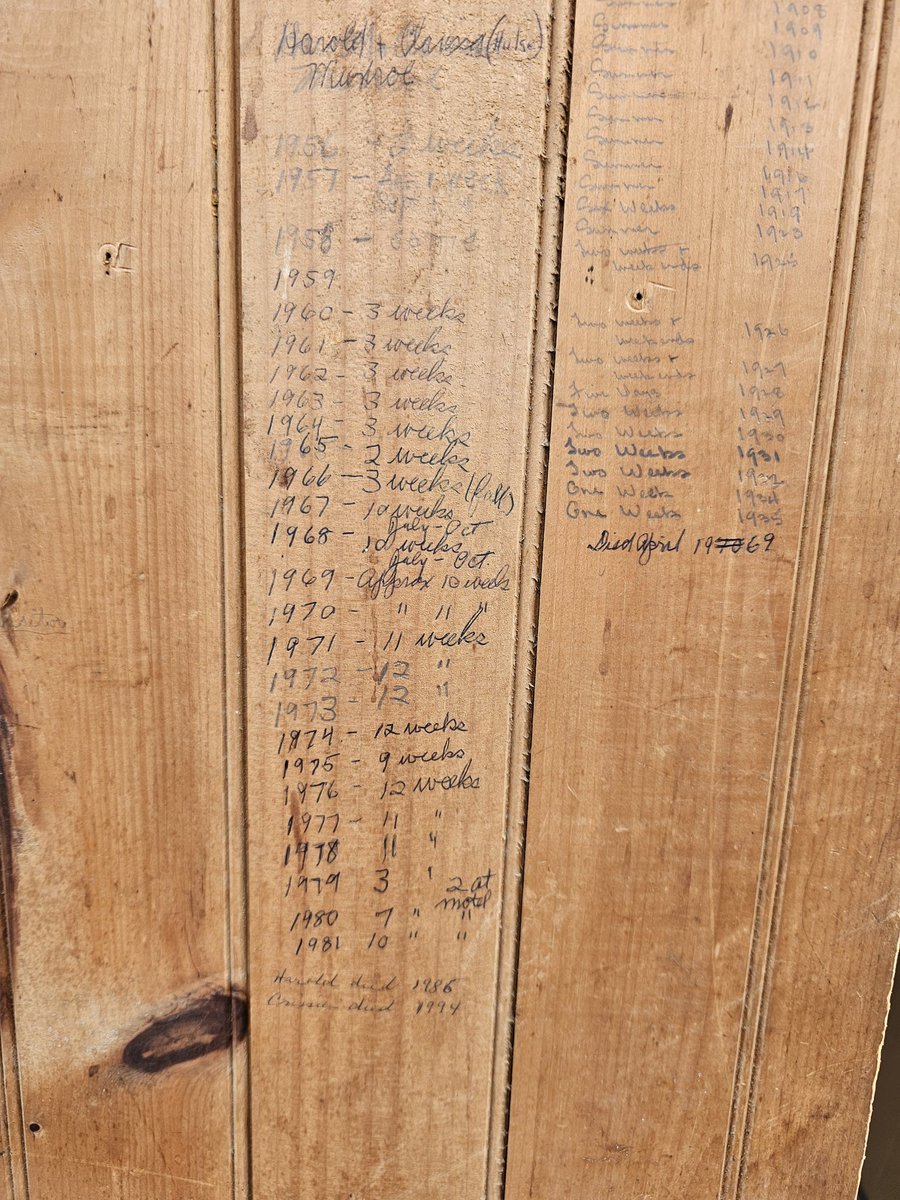 Harold + (Hulse)
Munrol
1956 - 2 weeks
1957 - 1 week
1958 -
1959
1960 - 3 weeks
1961 - 3 weeks
1962 - 3 weeks
1963 - 3 weeks
1964 - 3 weeks
1965 - 2 weeks
1966 - 3 weeks (fall)
1967 - 10 weeks
July - Oct
1968 - 10 weeks
July - Oct.
1969 - Approx 10 weeks
1970 - " " "
1971 - 11 weeks
1972 - 12 "
1973 - 12 "
1974 - 12 weeks
1975 - 9 weeks
1976 - 12 weeks
1977 - 11 "
1978 11 "
1979 3 ' 2 at
motel
1980 7 " "
1981 10 " "
Harold died 1986
died 1994
Summer 1908
Summer 1909
Summer 1910
Summer 1911
Summer 1912
Summer 1913
Summer 1914
Summer 1916
Summer 1917
Six Weeks 1919
Summer 1923
Two weeks +
week ends 1925
"
Two weeks +
weekends 1926
Two weeks +
weekends 1927
Five Days 1928
Two Weeks 1929
Two Weeks 1930
Two Weeks 1931
Two Weeks 1932
One Week 1934
One Week 1935
Died April 197069